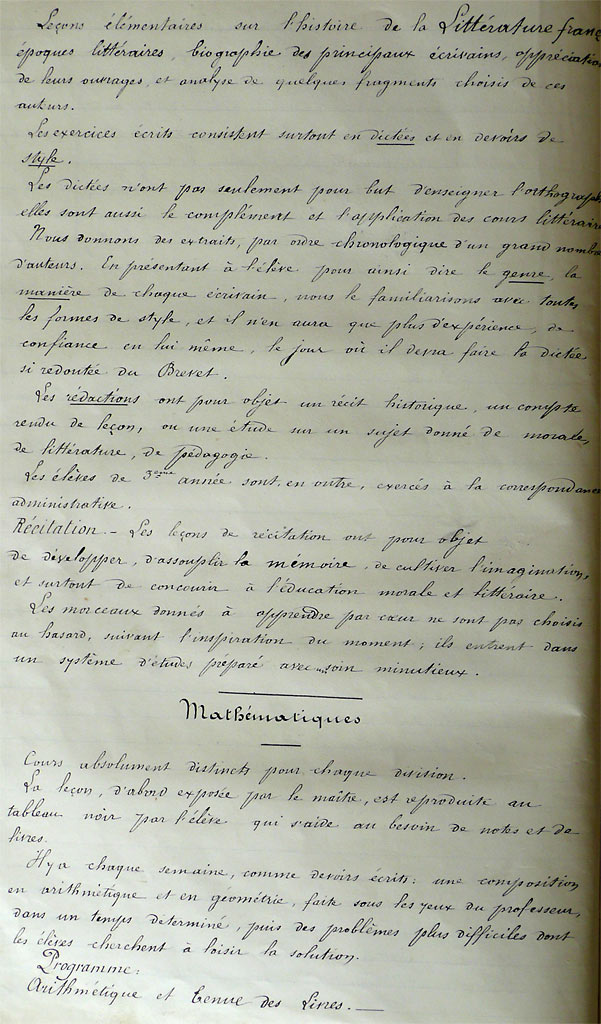 Leçons élémentaires sur l'histoire de la Littérature franç
époques littéraires, biographie des principaux écrivains, appréciation
de leurs ouvrages, et analyse de quelques fragments choisis de ces
auteurs.
Les exercices écrits consistent surtout en dictées et en devoirs de
style.
Les dictées n'ont pas seulement pour but d'enseigner l'orthographe
elles sont aussi le complément et l'application des cours littéraires
Nous donnons des extraits, par ordre chronologique d'un grand nombre
d'auteurs. En présentant à l'élève pour ainsi dire le genre, la
manière de chaque écrivain, nous le familiarisons avec toutes
les formes de style, et il n'en aura que plus d'expérience, de
confiance en lui même, le jour où il devra faire la dictée
si redoutée du Brevet.
Les rédactions ont pour objet un récit historique, un compte
rendu de leçon, ou une étude sur un sujet donné de morale,
de littérature, de pédagogie.
Les élèves de 3ème année sont, en outre, exercés à la correspondance
administrative.
Récitation. - Les leçons de récitation ont pour objet
de développer, d'assouplir la mémoire, de cultiver l'imagination,
et surtout de concourir à l'éducation morale et littéraire.
Les morceaux donnés à apprendre par cœur ne sont pas choisis
au hasard, suivant l'inspiration du moment; ils entrent dans
un système d'études préparé avec soin minutieux.
Mathématiques
Cours absolument distincts pour chaque division.
La leçon, d'abord exposée par le maître, est reproduite au
tableau noir par l'élève qui s'aide au besoin de notes et de
livres.
Il y a chaque semaine, comme devoirs écrits: une composition
en arithmétique et en géométrie, faite sous les yeux du professeur,
dans un temps déterminé, puis des problèmes plus difficiles dont
les élèves cherchent à loisir la solution.
Programme:
Arithmétique et Tenue des Livres. —